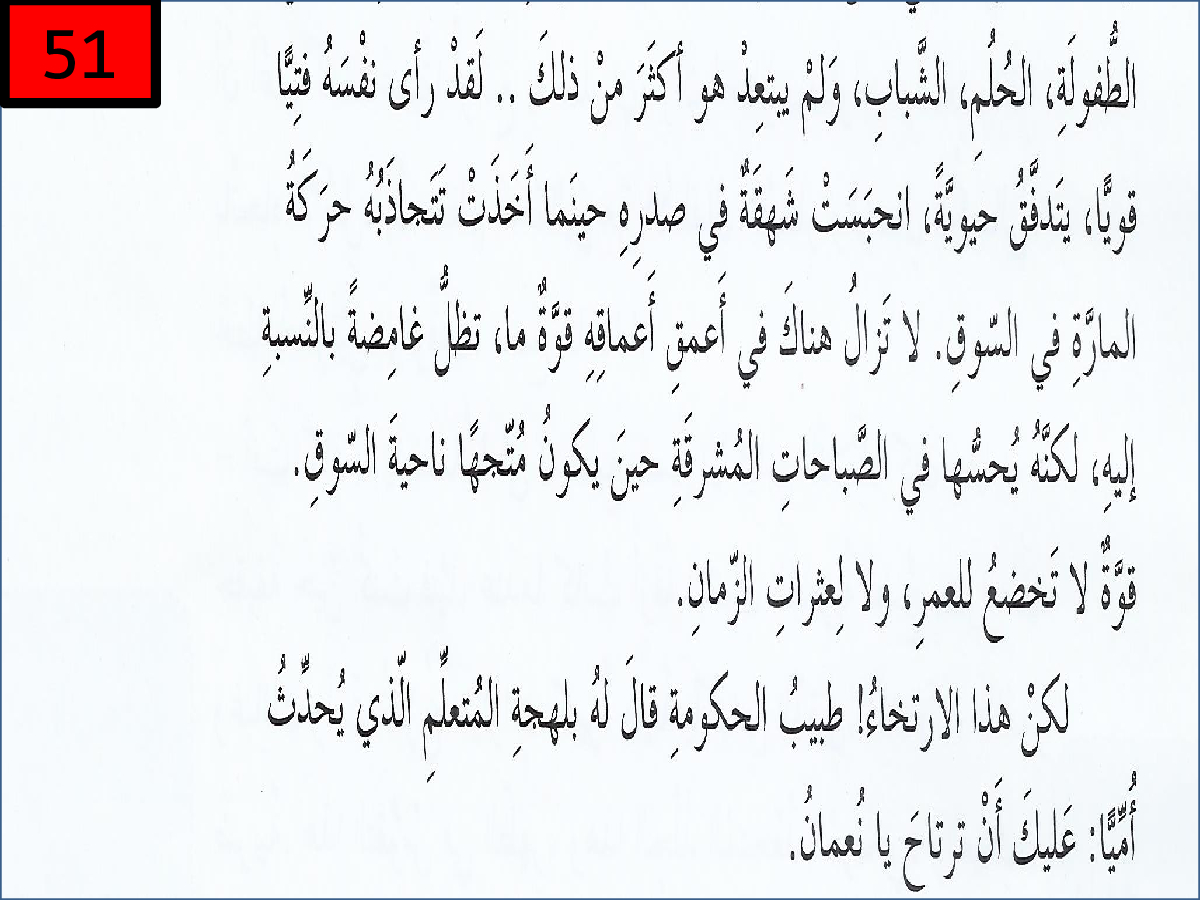 51
الطُّفولَةِ، الحُلُمِ، الشَّبابِ، وَلمْ يبتعِدْ هو أكثَرَ منْ ذلكَ .. لَقدْ رأى نفْسَهُ فتِيًّا
قويًّا، يتَدفَّقُ حيويَّةً، انحبَسَتْ شَهقَةٌ في صدرِهِ حينَما أَخَذَتْ تَتَجاذَبُهُ حرَكَةُ
المارَّةِ في السّوقِ. لا تَزالُ هناكَ في أَعمقِ أَعماقِهِ قوَّةٌ ما، تظلُّ غامِضةً بالنِّسبةِ
إليهِ، لكنَّهُ يُحسُّها في الصَّباحاتِ المُشرقَةِ حينَ يكونُ مُتّجهًا ناحيةَ السّوقِ.
قوَّةٌ لا تَخضعُ للعمرِ، ولا لِعثراتِ الزّمانِ.
لكنْ هذا الارتخاءُ! طبيبُ الحكومةِ قالَ لهُ بلهجةِ المُتعلِّمِ الّذي يُحدِّثُ
أُمّيًّا: عَليكَ أَنْ ترتاحَ يا نُعمانُ.